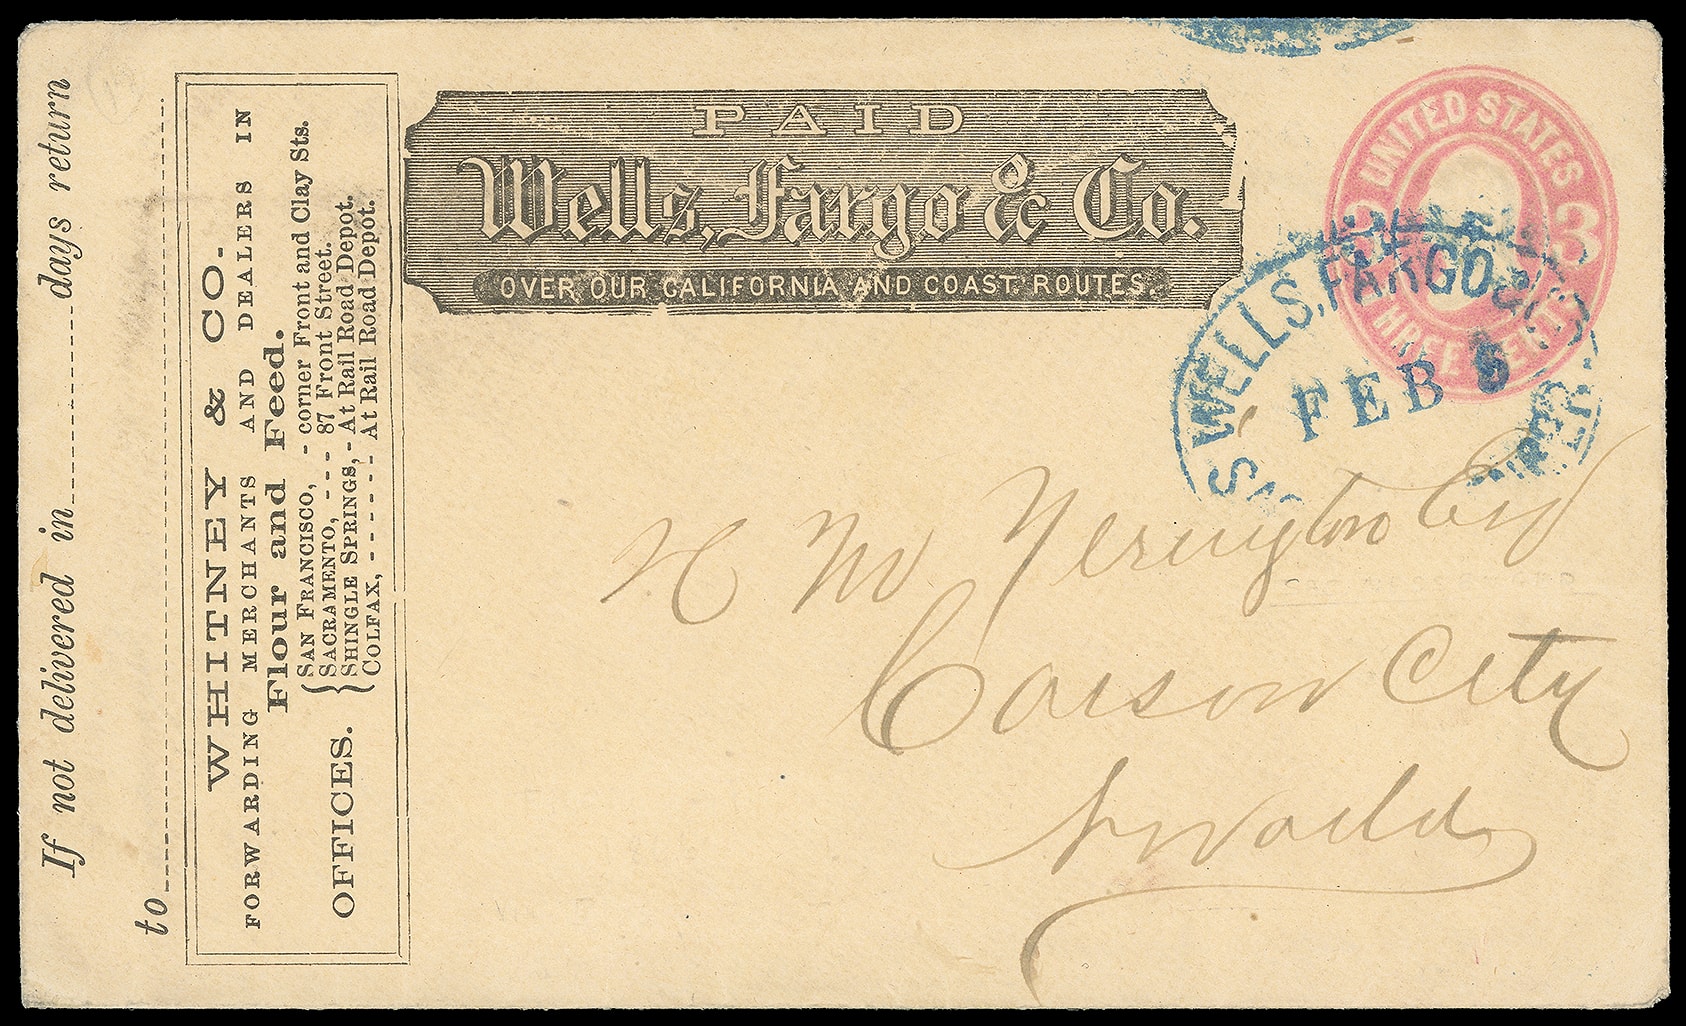 If not delivered in ........ days return
to ........
WHITNEY & CO.
FORWARDING MERCHANTS AND DEALERS IN
Flour and Feed.
OFFICES.
SAN FRANCISCO, - corner Front and Clay Sts.
SACRAMENTO, - - - 87 Front Street.
SHINGLE SPRINGS, - At Rail Road Depot.
COLFAX, - - - - - - - At Rail Road Depot.
PAID
Wells, Fargo & Co.
OVER OUR CALIFORNIA AND COAST ROUTES.
UNITED STATES
3 3
THREE CENTS
WELLS, FARGO & CO
FEB 5
H M Yerington Esq
Carson City
Nevada